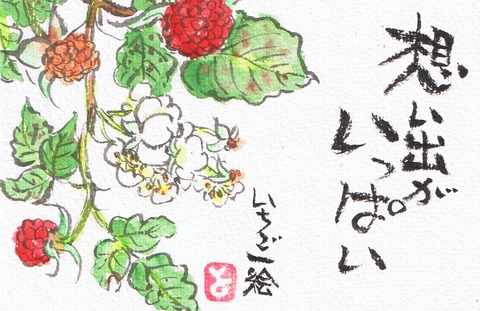 想い出が
いっぱい
いちご一絵
と